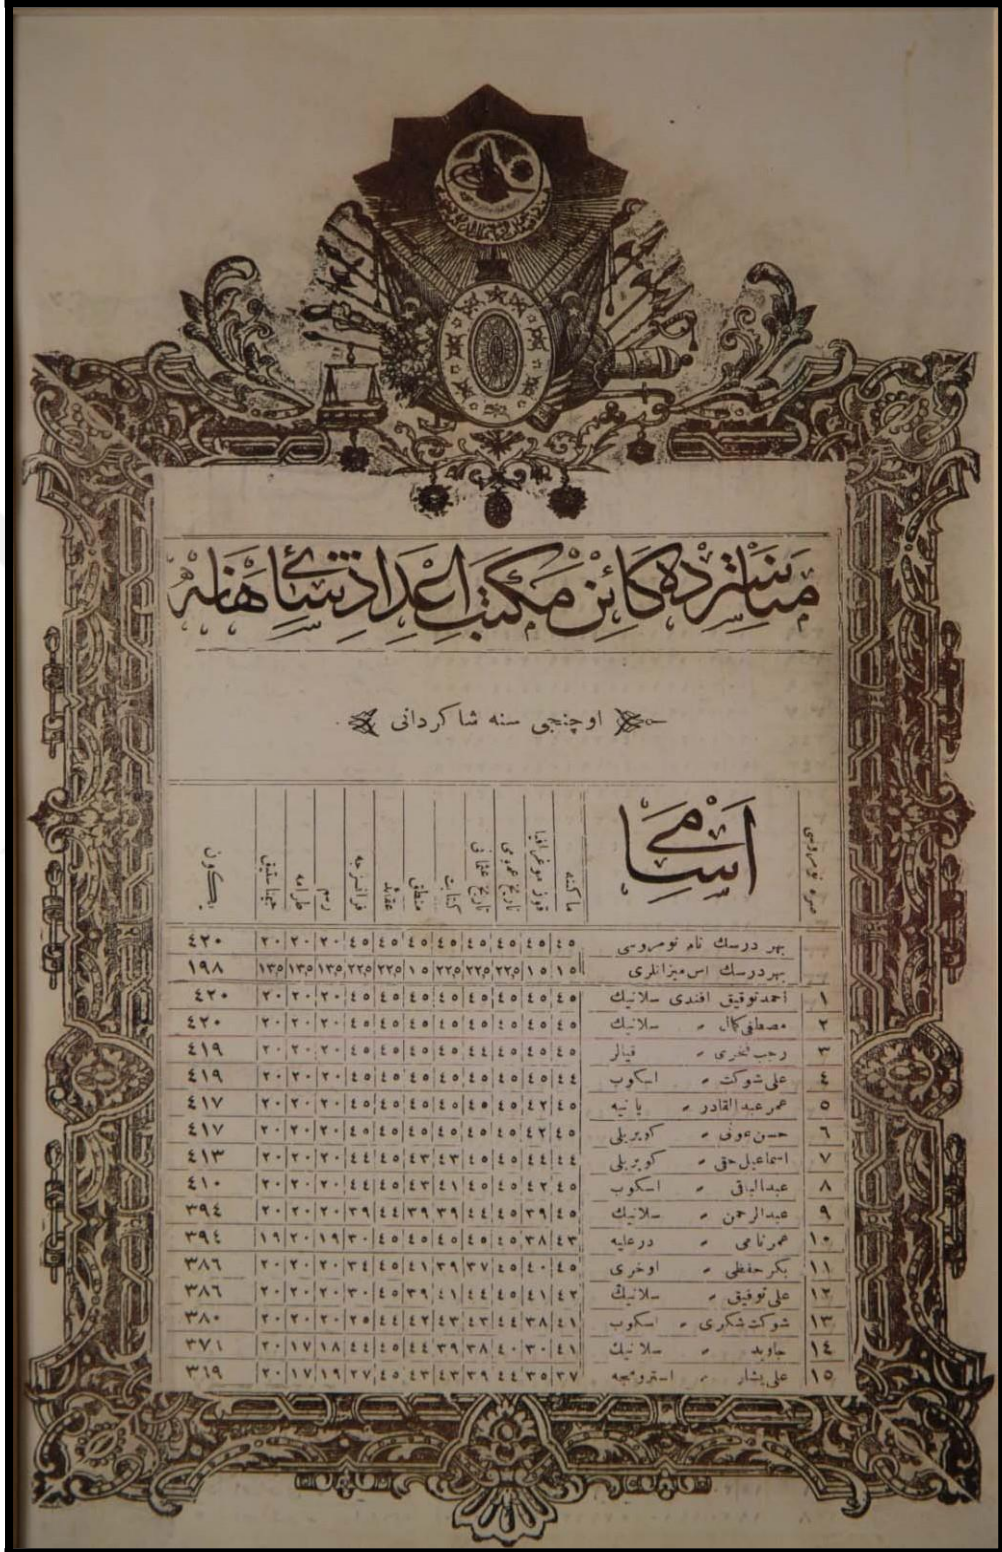 مناستردە كائن مكتب اعدادئ شاهانه
اوچنجى سنه شاكردانى
صره نومروسى اسامى ماكنه قوزموغرافيا تاريخ عمومى تاريخ عثمانى كتابت منطق عقايد فرانسزجه رسم جيمناستيق يكون
بهر درسك تام نومروسى ٤٥ ٤٥ ٤٥ ٤٥ ٤٥ ٤٥ ٤٥ ٤٥ ٢٠ ٢٠ ٢٠ ٤٢٠
بهر درسك اس ميزانلرى ١٥ ١٥ ٢٢٥ ٢٢٥ ٢٢٥ ١٥ ٢٢٥ ٢٢٥ ١٣٥ ١٣٥ ١٣٥ ١٩٨
١ احمد توفيق افندى سلانيك ٤٥ ٤٥ ٤٥ ٤٥ ٤٥ ٤٥ ٤٥ ٤٥ ٢٠ ٢٠ ٢٠ ٤٢٠
٢ مصطفى كمال " سلانيك ٤٥ ٤٥ ٤٥ ٤٥ ٤٥ ٤٥ ٤٥ ٤٥ ٢٠ ٢٠ ٢٠ ٤٢٠
٣ رجب فخرى " قيالر ٤٥ ٤٥ ٤٥ ٤٤ ٤٥ ٤٥ ٤٥ ٤٥ ٢٠ ٢٠ ٢٠ ٤١٩
٤ على شوكت " اسكوب ٤٤ ٤٥ ٤٥ ٤٥ ٤٥ ٤٥ ٤٥ ٤٥ ٢٠ ٢٠ ٢٠ ٤١٩
٥ عمر عبدالقادر " يانيه ٤٥ ٤٢ ٤٥ ٤٥ ٤٥ ٤٥ ٤٥ ٤٥ ٢٠ ٢٠ ٢٠ ٤١٧
٦ حسن عونى " كوپريلى ٤٥ ٤٢ ٤٥ ٤٥ ٤٥ ٤٥ ٤٥ ٤٥ ٢٠ ٢٠ ٢٠ ٤١٧
٧ اسماعيل حقى " كوپريلى ٤٤ ٤٤ ٤٥ ٤٥ ٤٣ ٤٣ ٤٥ ٤٤ ٢٠ ٢٠ ٢٠ ٤١٣
٨ عبدالباقى " اسكوب ٤٥ ٤٢ ٤٥ ٤٥ ٤١ ٤٣ ٤٥ ٤٤ ٢٠ ٢٠ ٢٠ ٤١٠
٩ عبدالرحمن " سلانيك ٤٥ ٣٩ ٤٥ ٤٤ ٣٩ ٣٩ ٤٤ ٣٩ ٢٠ ٢٠ ٢٠ ٣٩٤
١٠ عمر نامى " درعليه ٤٣ ٣٨ ٤٥ ٤٥ ٤٥ ٤٥ ٤٥ ٣٠ ١٩ ٢٠ ١٩ ٣٩٤
١١ بكر حفظى " اوخرى ٤٥ ٤٠ ٤٥ ٣٧ ٣٩ ٤١ ٤٥ ٣٤ ٢٠ ٢٠ ٢٠ ٣٨٦
١٢ على توفيق " سلانيك ٤٢ ٤١ ٤٥ ٤٤ ٤١ ٣٩ ٤٥ ٣٠ ٢٠ ٢٠ ٢٠ ٣٨٦
١٣ شوكت شكرى " اسكوب ٤١ ٣٨ ٤٤ ٤٣ ٤٣ ٤٤ ٤٢ ٢٥ ٢٠ ٢٠ ٢٠ ٣٨٠
١٤ جاويد " سلانيك ٤١ ٣٠ ٤٠ ٣٨ ٣٩ ٤٤ ٤٥ ٤٤ ١٨ ١٧ ٢٠ ٣٧٦
١٥ على يشار " استرومجه ٣٧ ٣٥ ٤٤ ٣٩ ٤٣ ٤٣ ٤٥ ٢٧ ١٩ ١٧ ٢٠ ٣٦٩